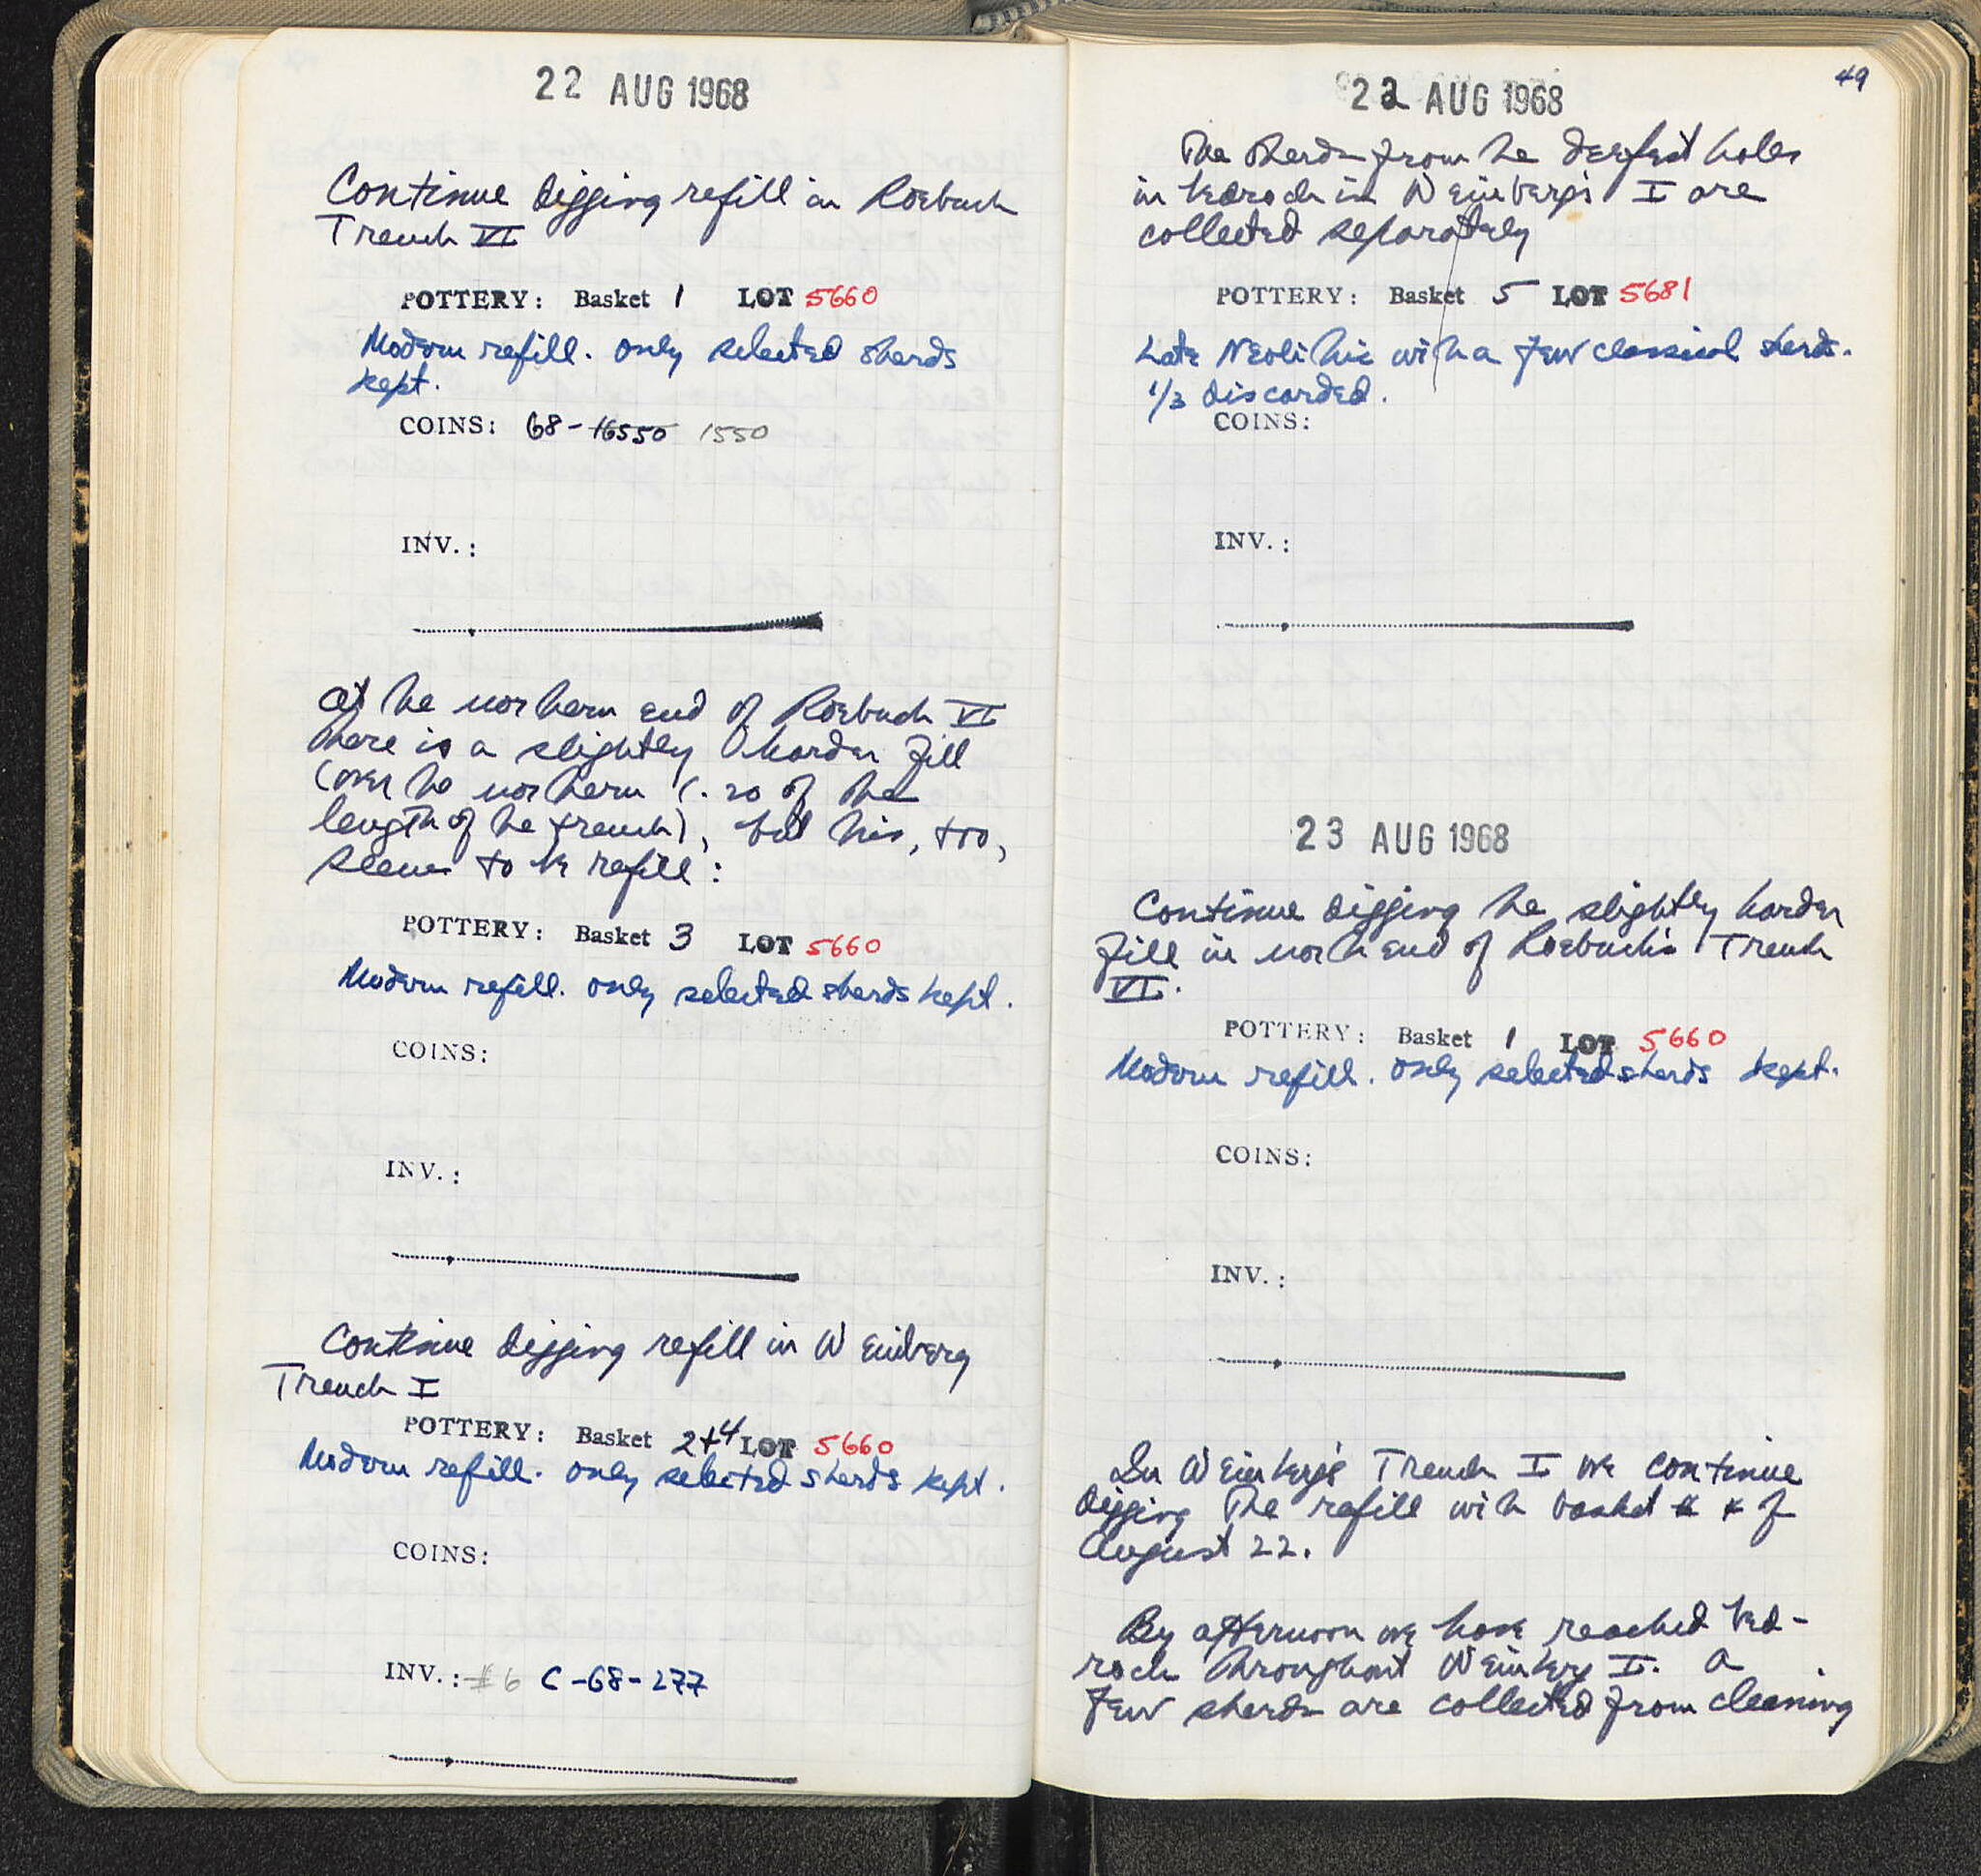 22 AUG 1968
Continue digging refill in Roebuck
Trench VI
POTTERY: Basket 1 LOT 5660
Modern refill. only selected sherds
kept.
COINS: 68-16550 1550
INV.:
At the northern end of Roebuck VI
there is a slightly harder fill
(over the northern c. 20 of the
length of the trench), but this, too,
seems to be refill:
POTTERY: Basket 3 LOT 5660
Modern refill. only selected sherds kept.
COINS:
INV.:
Continue digging refill in Weinberg
Trench I
POTTERY: Basket 2+4 LOT 5660
Modern refill. only selected sherds kept.
COINS:
INV.: #6 C-68-277
49
22 AUG 1968
The sherds from the deepest holes
in bedrock in Weinberg's I are
collected separately
POTTERY: Basket 5 LOT 5681
Late Neolithic with a few classical sherds.
1/3 discarded.
COINS:
INV.:
23 AUG 1968
Continue digging the slightly harder
fill in north end of Roebuck's Trench
VI.
POTTERY: Basket 1 LOT 5660
Modern refill. only selected sherds kept.
COINS:
INV.:
In Weinberg's Trench I we continue
digging the refill with basket of
August 22.
By afternoon we have reached bed-
rock throughout Weinberg I. A
few sherds are collected from cleaning